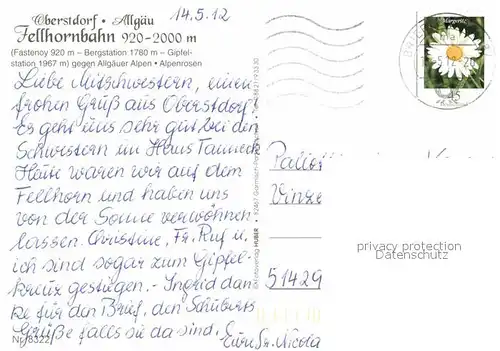 Oberstdorf • Allgäu
14.5.12
Fellhornbahn 920-2000 m
(Fastenoy 920 m – Bergstation 1780 m – Gipfel-
station 1967 m) gegen Allgäuer Alpen • Alpenrosen
Liebe Mitschwestern, einen
frohen Gruß aus Oberstdorf!
Es geht uns sehr gut bei den
Schwestern im Haus Tanneck
Heute waren wir auf dem
Fellhorn und haben uns
von der Sonne verwöhnen
lassen. Christine, Fr. Ruf u.
ich sind sogar zum Gipfel-
kreuz gestiegen. - Ingrid dan
ke für den Brief, den Schuberts
Grüße falls sie da sind.
Eure Sr. Nicola
Nr. 8322
HUBER
Margerite
45
Vinze
51429
privacy protection
Datenschutz